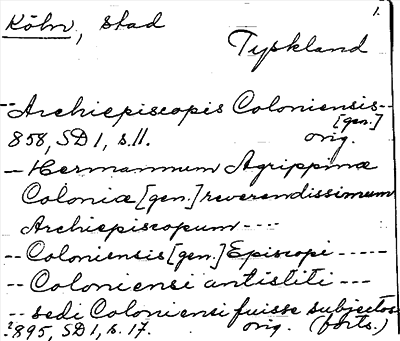 Köln, stad 1.
Tyskland
-- Archiepiscopis Coloniensis --
[gen.]
858, SD 1, s. 11. orig.
-- Hermannum Agrippinæ
Coloniæ [gen.] reverendissimum
Archiepiscopum ---
-- Coloniensis [gen.] Episcopi -----
-- Coloniensi antistiti ---
-- sedi Coloniensi fuisse subjectos
?895, SD 1, s. 17. orig. (forts.)